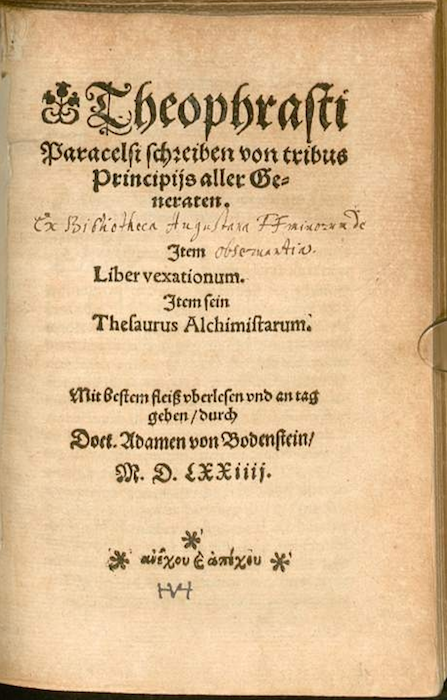 Theophrasti
Paracelsi schreiben von tribus
Principijs aller Ge-
neraten.
Ex Bibliotheca Augustana FF minorum de
observantia.
Item
Liber vexationum.
Item sein
Thesaurus Alchimistarum.
Mit bestem fleiß vberlesen vnd an tag
geben/durch
Doct. Adamen von Bodenstein/
M. D. LXXiiij.
ἀνέχου ϗ ἀπέχου